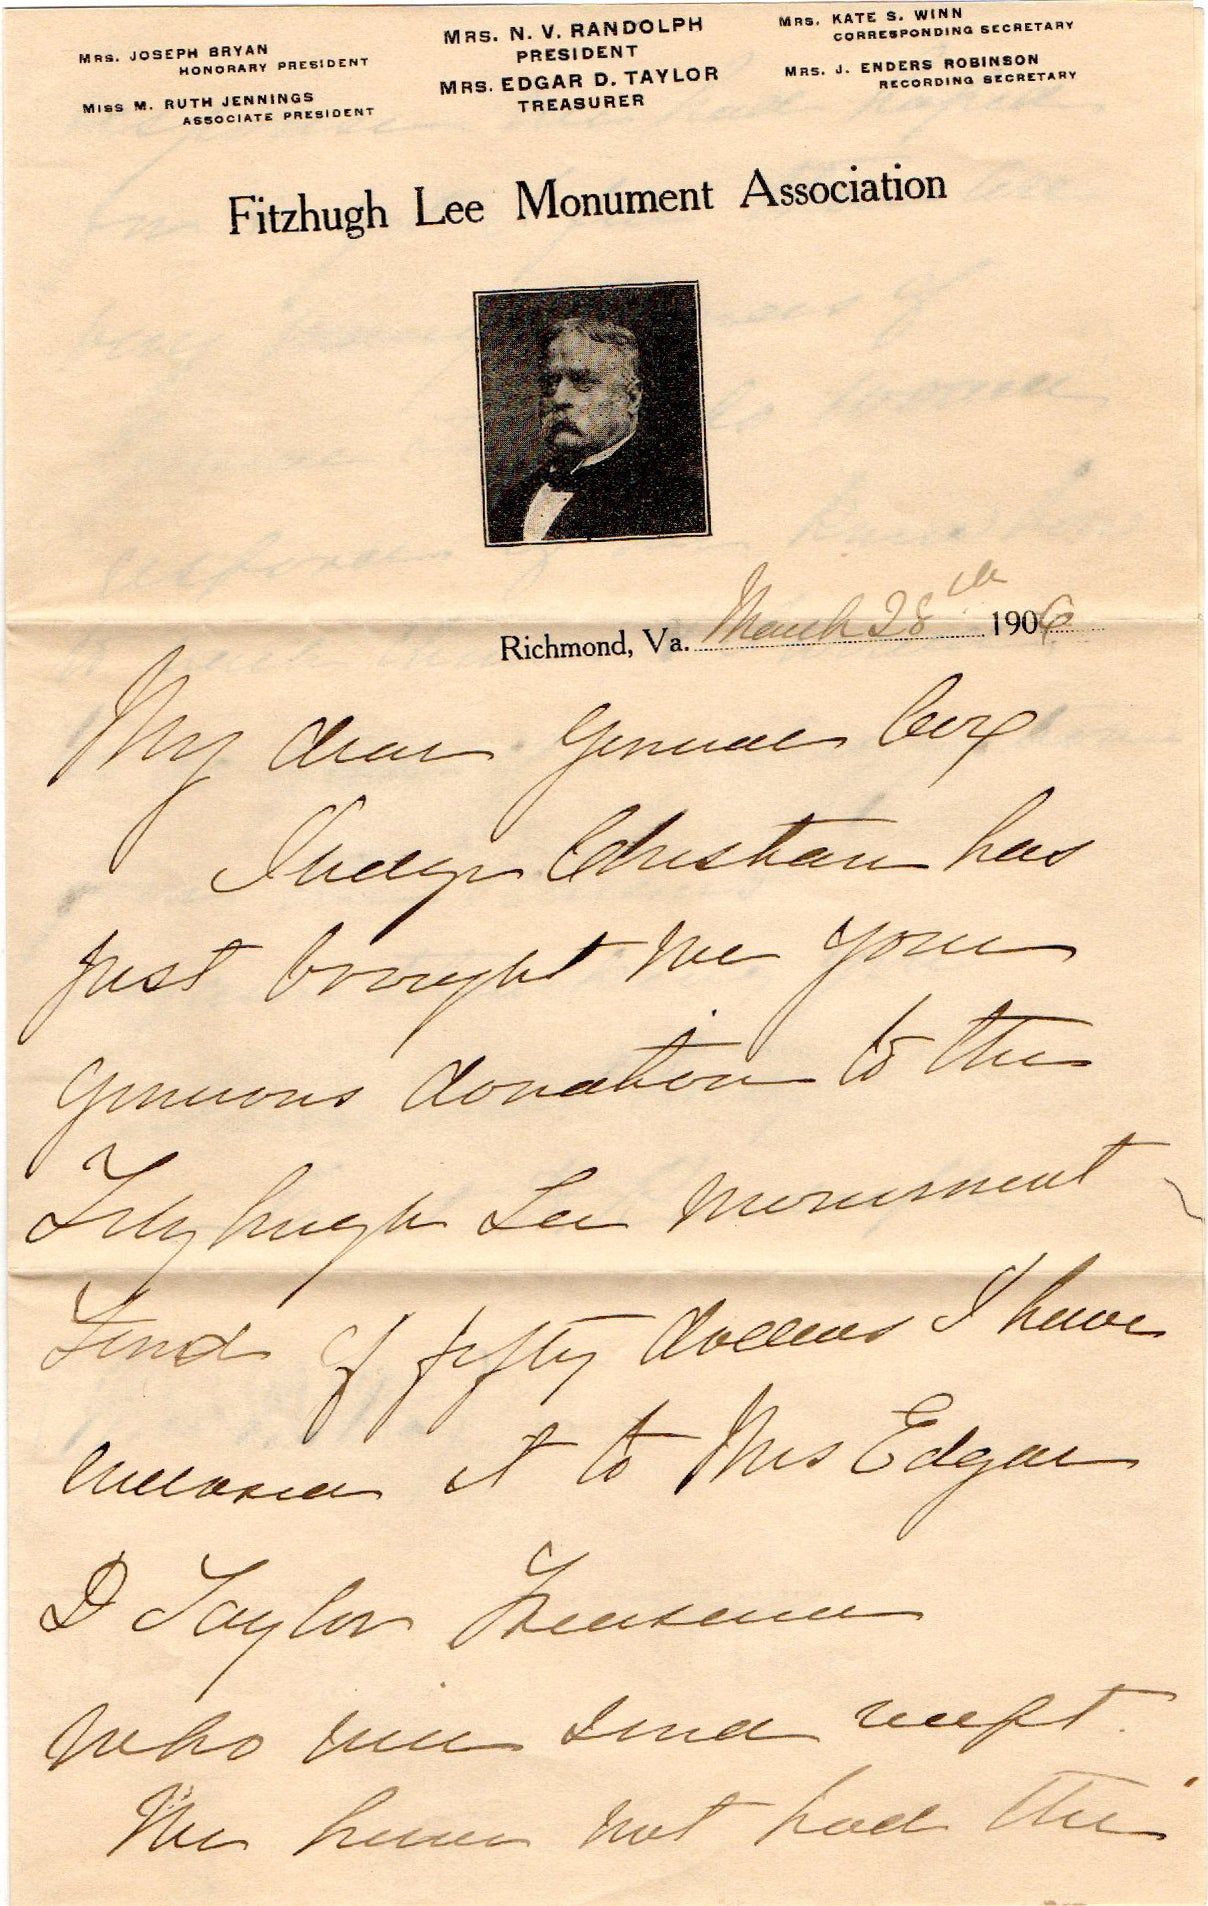 MRS. JOSEPH BRYAN
HONORARY PRESIDENT
MISS M. RUTH JENNINGS
ASSOCIATE PRESIDENT
MRS. N. V. RANDOLPH
PRESIDENT
MRS. EDGAR D. TAYLOR
TREASURER
MRS. KATE S. WINN
CORRESPONDING SECRETARY
MRS. J. ENDERS ROBINSON
RECORDING SECRETARY
Fitzhugh Lee Monument Association
Richmond, Va. March 28th 1906
My dear General Cox
Judge Christian has
just brought me your
generous donation to the
Fitzhugh Lee Monument
Fund of fifty dollars I have
it to Mrs Edgar
D Taylor Treasurer
who will send receipt.
We have not had the